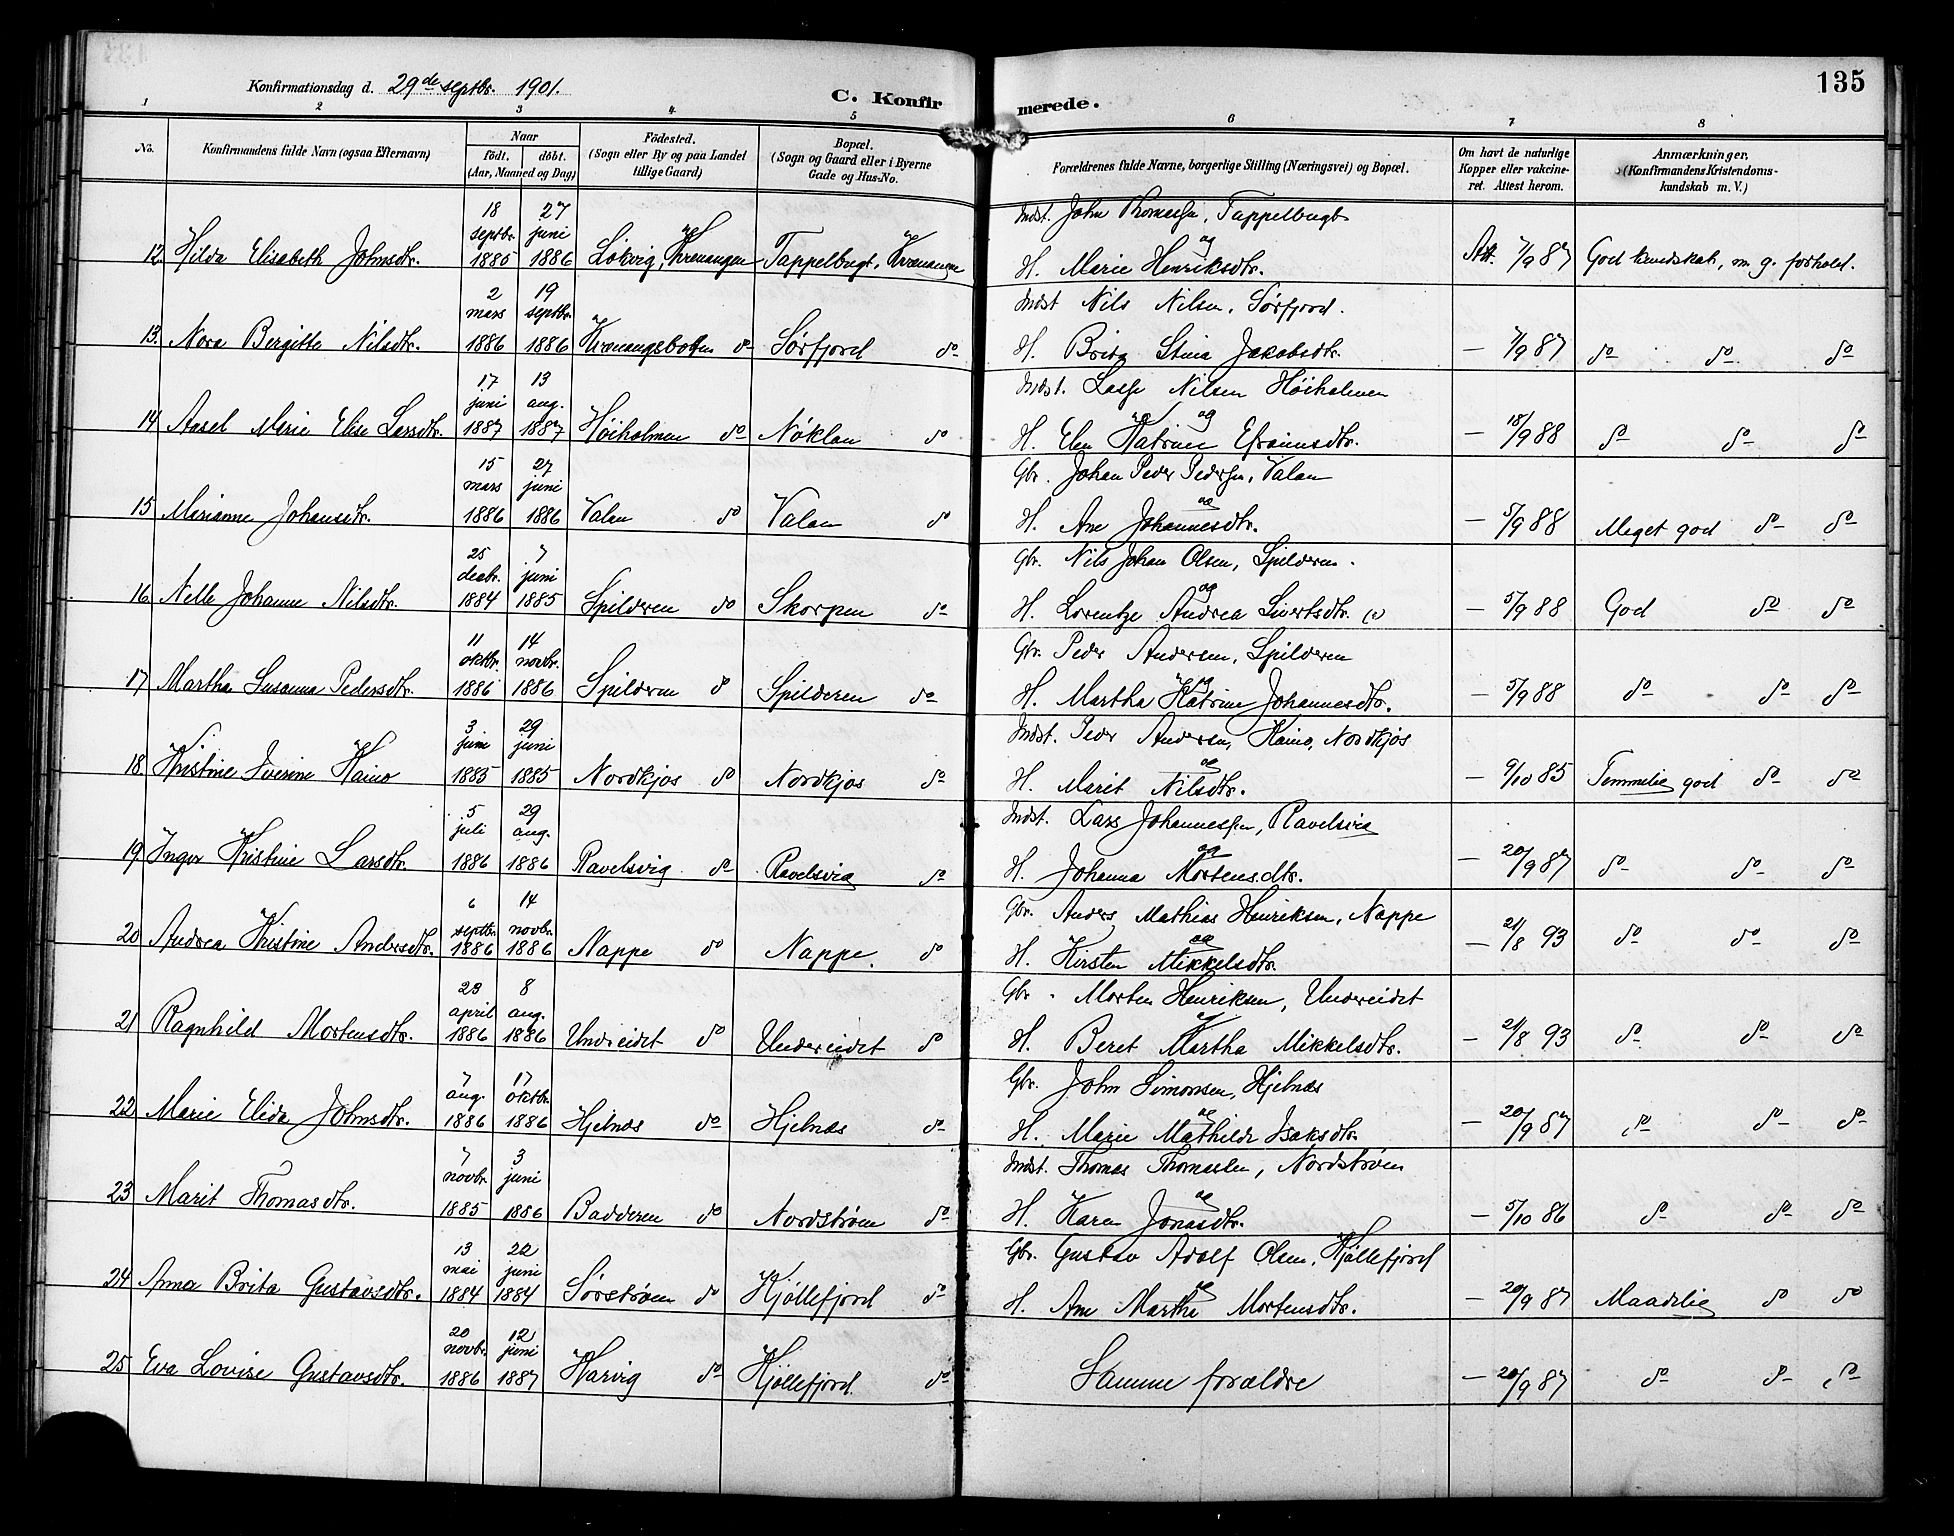 135
Konfirmationsdag d. 29de septbr. 1901.
C. Konfirmerede.
1 2 3 4 5 6 7 8
No. Konfirmandens fulde Navn (ogsaa Efternavn) Naar födt. döbt. (Aar, Maaned og Dag) Födested. (Sogn eller By og paa Landet tillige Gaard) Bopæl. (Sogn og Gaard eller i Byerne Gade og Hus-No. Forældrenes fulde Navne, borgerlige Stilling (Næringsvei) og Bopæl. Om havt de naturlige Kopper eller vakcineret. Attest herom. Anmærkninger. (Konfirmandens Kristendomskundskab m. V.)
18 septbr. 27 juni Indst. John Thomassen, Tappelbugt og
12. Hilda Elisabeth Johnsdtr. 1885 1886 Lökvig, Kvænangen Tappelbugt, Kvænangen H. Marie Henriksdtr. Att. 7/9 87 God kundskab, m. g. forhold.
2 mars 19 septbr. Indst Nils Nilsen, Sørfjord.
13. Nora Bergitte Nilsdtr. 1886 1886 Kvænangsbotten do Sørfjord do H. Brita Stina Jakobsdtr. — 7/9 87 do do do
17 juni 13 aug. Indst. Lasse Nilsen Høiholmen og
14 Aasel Marie Elise Larsdtr. 1887 1887 Høiholmen do Nøklan do H. Elen Katrine Efraimsdtr. — 18/9 88 do do do
15 mars 27 juni Gbr. Johan Peder Pedersen, Valan og
15 Marianne Johansdtr. 1886 1886 Valan do Valan do H. Ane Johannesdtr. — 5/9 88 Meget god do do
25 decbr. 7 juni Gbr. Nils Johan Olsen, Spilderen. og
16 Nelle Johanne Nilsdtr. 1884 1885 Spilderen do Skorpen do H. Lorentze Andrea Sivertsdtr. — 5/9 88 God do do
11 oktbr. 14 novbr. Gbr. Peder Andersen, Spilderen og
17 Martha Susanna Pedersdtr. 1886 1886 Spilderen do Spilderen do H. Martha Katrine Johannesdtr. — 5/9 88 do do do
3 juni 29 juni Indst. Peder Andersen, Haino, Nordkjos og
18 Kristine Iverine Haino 1885 1885 Nordkjos do Nordkjos do H. Marit Nilsdtr. — 9/10 85 Temmelig god do do
5 juli 29 aug. Indst. Lars Johannessen, Ravelsvig og
19 Inger Kristine Larsdtr. 1886 1886 Ravelsvig do Ravelsvig do H. Johanna Mortensdtr. — 20/9 87 do do do
6 septbr. 14 novbr. Gbr. Anders Mathias Henriksen, Nappe og
20 Andrea Kristine Andersdtr. 1886 1886 Nappe do Nappe. do H. Kirsten Mikkelsdtr. — 21/8 93 do do do
23 april 8 aug. Gbr. Morten Henriksen, Undereidet og
21 Ragnhild Mortensdtr. 1886 1886 Undereidet do Undereidet do H. Beret Martha Mikkelsdtr. — 21/8 93 do do do
7 aug. 17 oktbr. Gbr. John Simonsen, Hjelnæs og
22 Marie Elida Johnsdtr. 1886 1886 Hjelnæs do Hjelnæs do H. Marie Mathilde Isaksdtr. — 20/9 87 do do do
7 novbr. 3 juni Indst. Thomas Thomassen, Nordstrøm og
23 Marit Thomasdtr. 1885 1886 Badderen do Nordstrøm do H. Karen Jonasdtr. — 5/10 86 do do do
13 mai 22 juni Gbr. Gustav Adolf Olsen, Kjøllefjord og
24 Anna Brita Gustavsdtr. 1884 1884 Sørstrøm do Kjøllefjord do H. Ane Martha Mortensdtr. — 20/9 87 Maadelig do do
20 novbr. 12 juni
25 Eva Lovise Gustavsdtr. 1886 1887 Harvig do Kjøllefjord do Samme forældre — 20/9 87 do do do